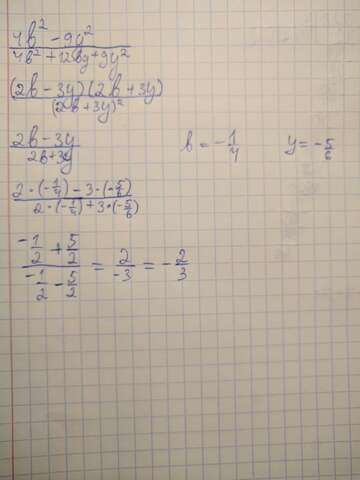 (4b² - 9y²)/(4b² + 12by + 9y²)
((2b - 3y)(2b + 3y))/((2b + 3y)²)
(2b - 3y)/(2b + 3y) b = -1/4 y = -5/6
(2·(-1/4) - 3·(-5/6))/(2·(-1/4) + 3·(-5/6))
(-1/2 + 5/2)/(-1/2 - 5/2) = 2/-3 = -2/3